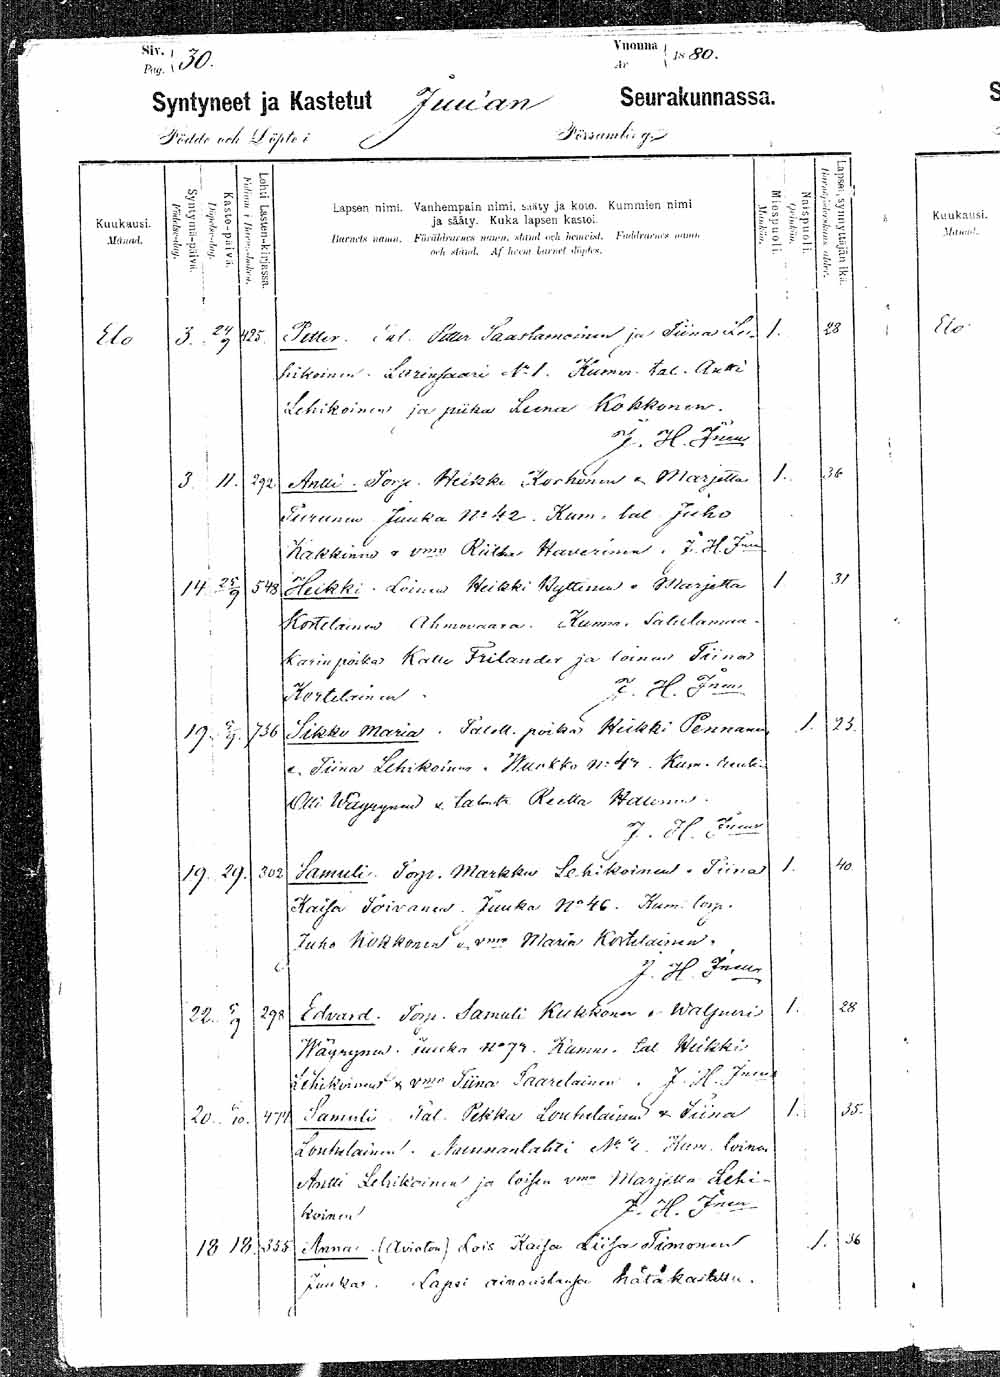 Siv. 30. Vuonna 1880.
Pag. År
Syntyneet ja Kastetut Juu'an Seurakunnassa.
Födde och Döpte i Församling
Kuukausi. Månad.
Syntymä-päivä. Födelsedag.
Kaste-päivä. Döpelsedag.
Lohti Lasten-kirjassa.
Lapsen nimi. Vanhempain nimi, sääty ja koto. Kummien nimi
ja sääty. Kuka lapsen kastoi.
Barnets namn. Föräldrarnes namn, stånd och hemvist. Faddrarnes namn
och stånd. Af hvem barnet döptes.
Miespuoli. Mankön.
Naispuoli. Qvinkön.
Lapsen synnyttäjän ikä.
Kuukausi.
Månad.
Elo 3. 24/9 425. Petter. Tal. Petter Saastamoinen ja Tiina Le- 1. 28
hikoinen. Larinsaari No 1. Kumm. tal. Antti
Lehikoinen ja piika Leena Kokkonen.
J. H. Ineus
3. 11. 292 Antti. Torp. Heikki Korhonen & Marjetta 1. 36
Turunen Juuka No 42. Kum. tal. Juho
Kakkinen & vmo Riitta Haverinen. J. H. Ineus
14 25/9 548 Heikki. Loinen Heikki Ryttinen & Marjetta 1 31
Kortelainen Ahmovaara. Kumm. Satulamaa-
karin poika Kalle Frilander ja loinen Tiina
Kortelainen. J. H. Ineus
19. 5/9. 736 Sikko Maria. Taloll. poika Heikki Pennanen 1. 23.
& Tiina Lehikoinen. Wuokko No 47. Kum.
Olli Wäyrynen & Reetta
J. H. Ineus
19. 29. 302 Samuli. Torp. Markku Lehikoinen & Tiina 1. 40.
Kaisa Toivanen. Juuka No 46. Kum. torp.
Juho Kokkonen & vmo Maria Kortelainen.
J. H. Ineus
22. 5/9 298 Edvard. Torp. Samuli Kukkonen & Walpuri 1. 28
Wäyrynen. Juuka No 77. Kumm. tal. Heikki
Lehikoinen & vmo Tiina Saarelainen. J. H. Ineus
20. /10. 474 Samuli. Tal. Pekka Louhelainen & Tiina 1. 35.
Louhelainen. Nunnanlahti No 2. Kum. loinen
Antti Lehikoinen ja loisen vmo Marjetta Lehi-
koinen J. H. Ineus
18 18. 355 Anna. (Avioton) Lois Kaisa Liisa Timonen 1. 36
Juuka. Lapsi ainoastansa hätäkastettu.
Elo